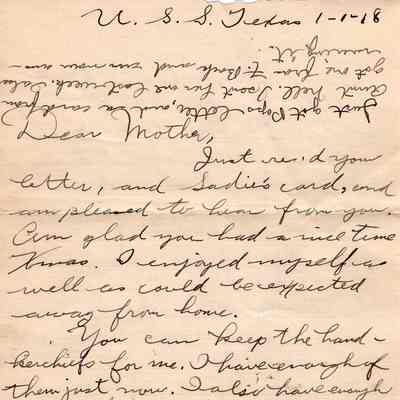 U. S. S. Texas 1-1-18
Just got Pops letter, and a card from
Aunt Nell. I sent her one last week. Also
got one from Ft. Bank and am now
running it.
Dear Mother,
Just rec'd your
letter, and Sadie's card, and
am pleased to hear from you.
Am glad you had a nice time
Xmas. I enjoyed myself as
well as could be expected
away from home.
You can keep the hand-
kerchiefs for me. I have enough of
them just now. I also have enough